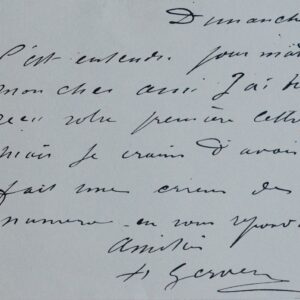 Dimanche
C'est entendu pour
mon cher ami J'ai
reçu votre première lettre
mais je crains d'avoir
fait une erreur de
numéro en vous répond
Amitiés
H Gervex